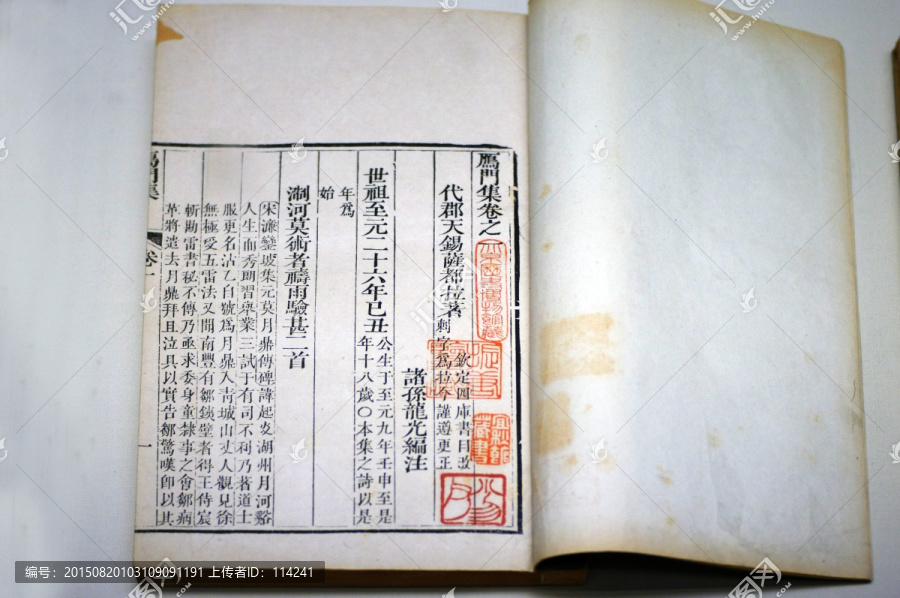 鴈門集卷之一
代郡天錫薩都拉著
欽定四庫書目改
刺字爲拉今謹遵更正
諸孫龍光編注
世祖至元二十六年己丑
公生于至元九年壬申至是
年十八歲〇本集之詩以是
年爲
始
㵎河莫術者禱雨驗甚二首
宋濂鑾坡集元莫月鼎傳碑諱起炎湖州月河谿
人生而秀朗習舉業三試于有司不利乃著道士
服更名洞乙自號爲月鼎入青城山丈人觀見徐
無極受五雷法又聞南豐有鄒鐵壁者得王侍宸
斬勘雷書秘不傳乃亟求委身童隸事之會鄒病
革將遣去月鼎拜且泣具以實告鄒驚嘆卽以其
鴈門集
卷一
一
藏書
編号:20150820103109091191 上传者ID:114241